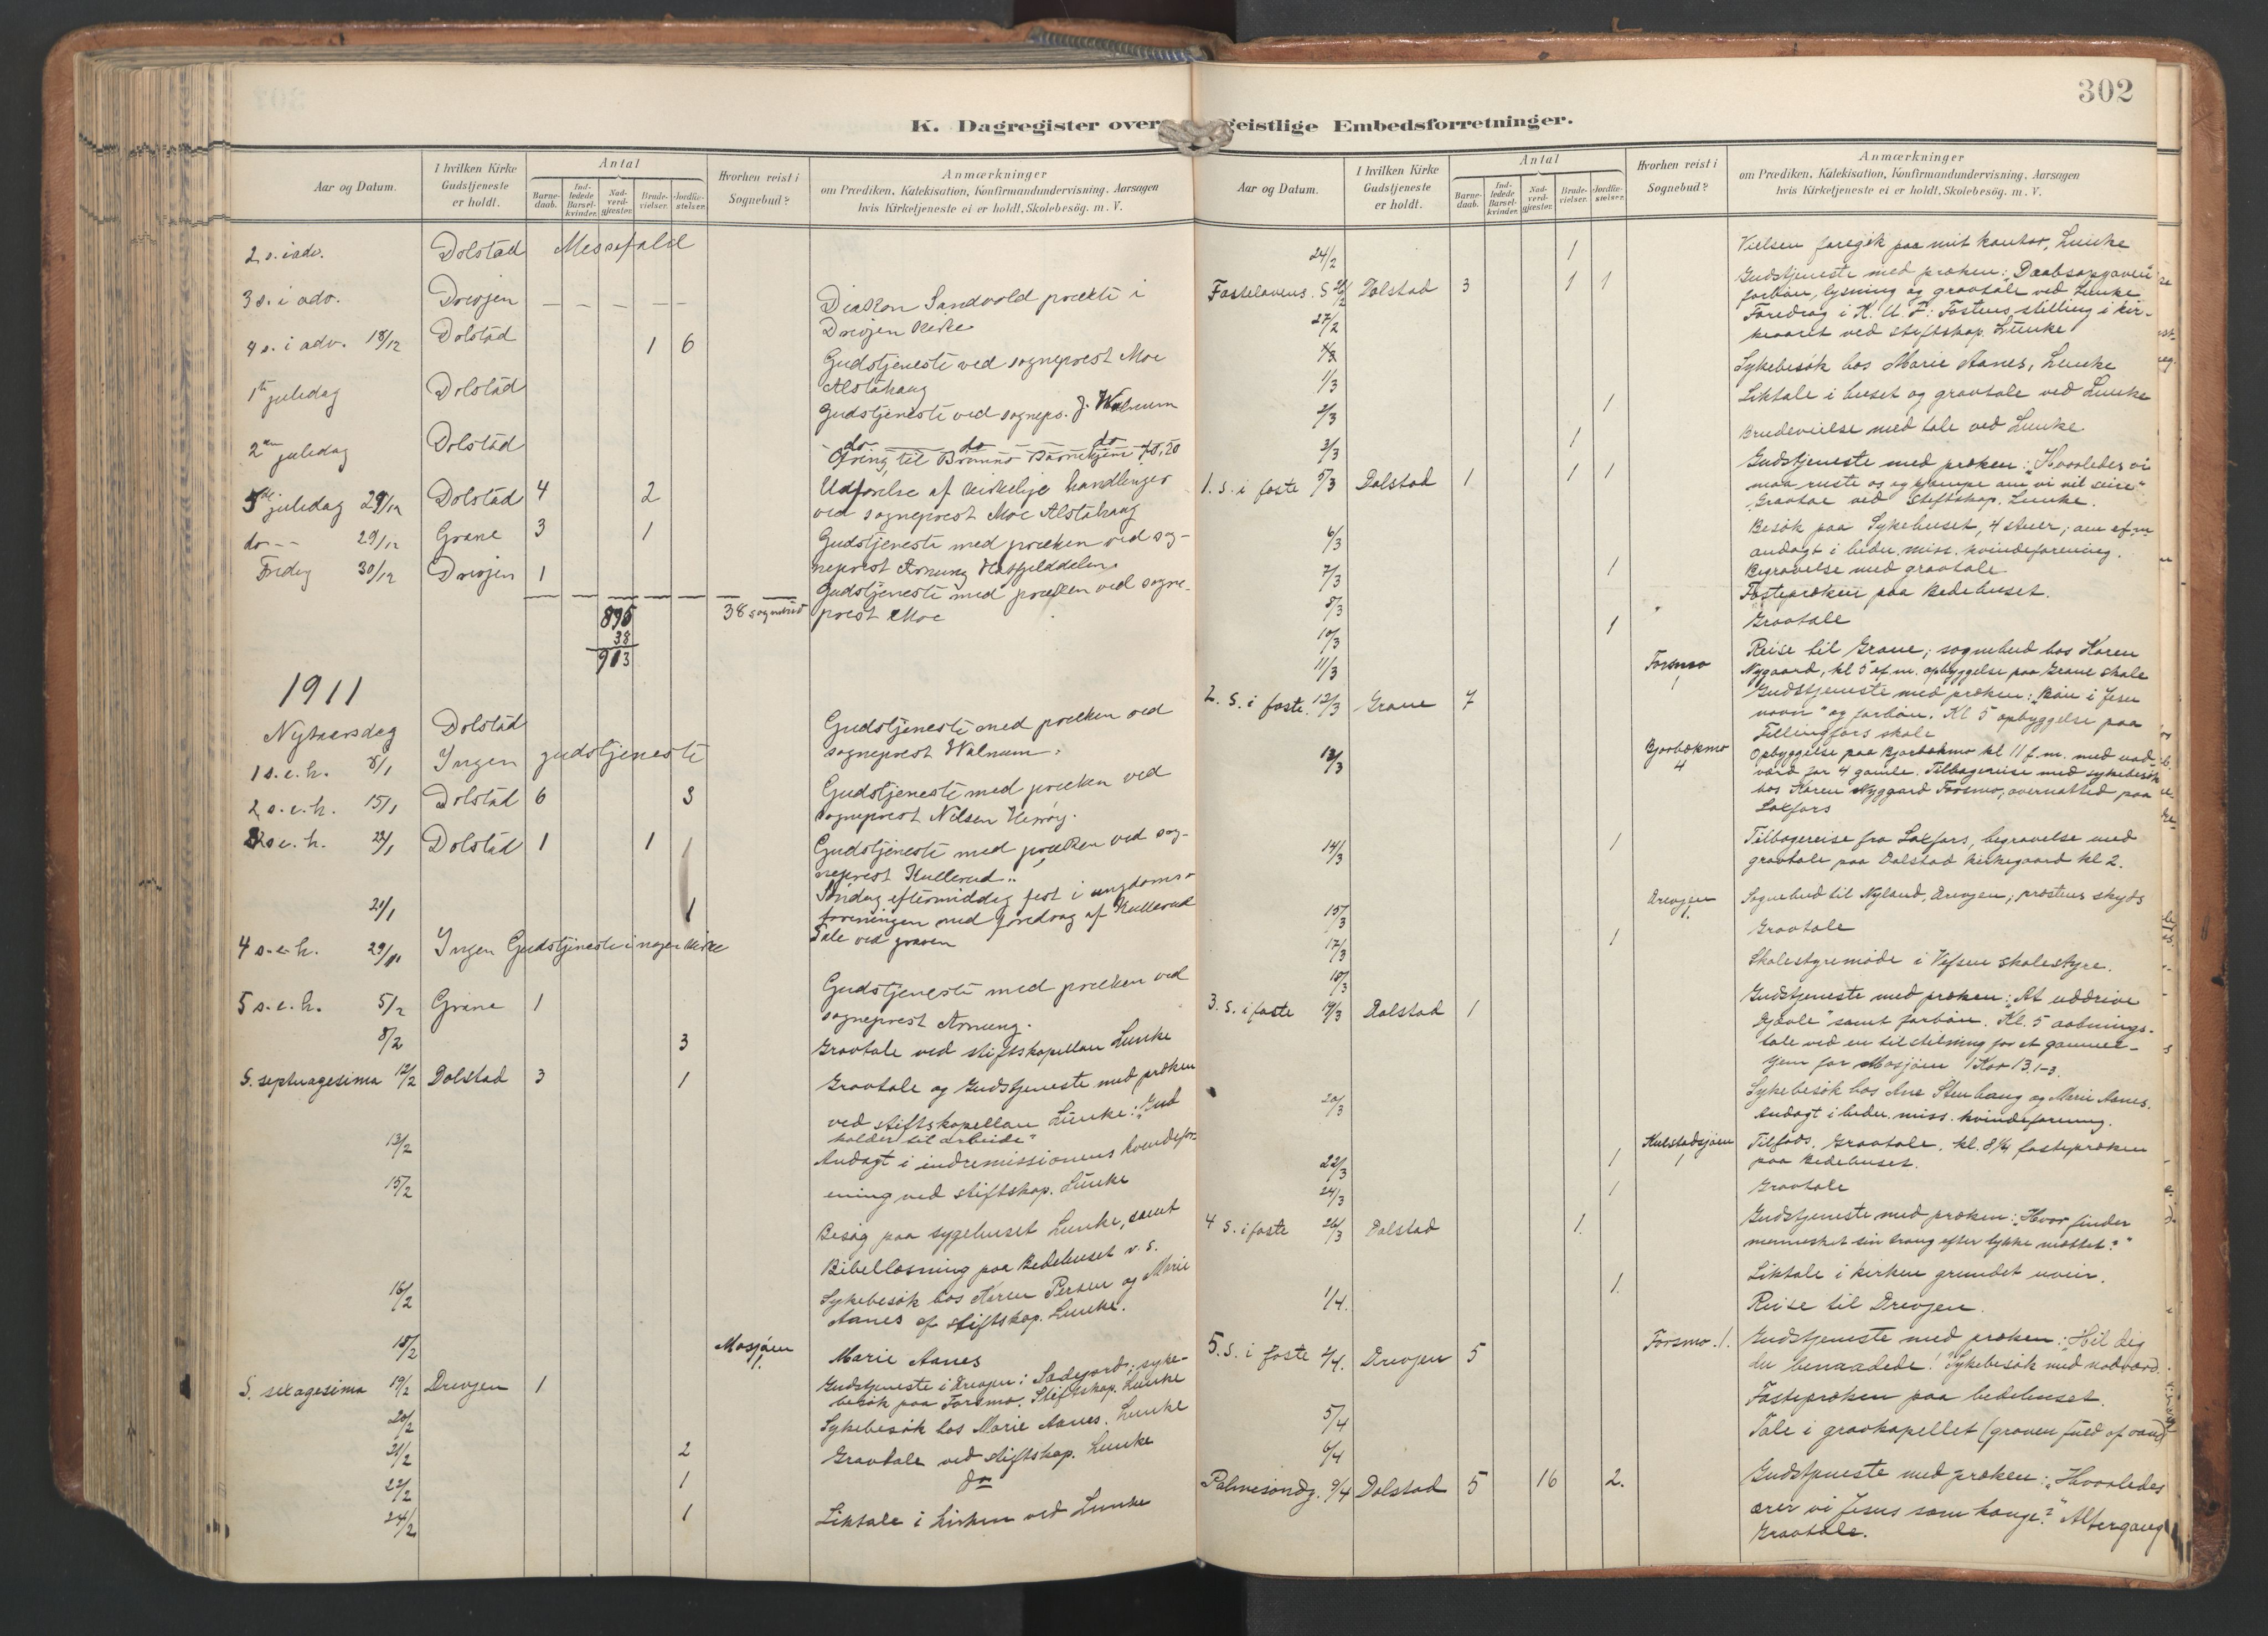 302
K. Dagregister over geistlige Embedsforretninger.
Aar og Datum.
I hvilken Kirke Gudstjeneste er holdt.
Antal
Barne-daab.
Ind-ledede Barsel-kvinder.
Nad-verd-gjester.
Brude-vielser.
Jordfæ-stelser.
Hvorhen reist i Sognebud?
Anmærkninger
om Prædiken, Katekisation, Konfirmandundervisning, Aarsagen
hvis Kirketjeneste ei er holdt, Skolebesög. m. V.
2 s. i adv. Dolstad Messefald
3 s. i adv. Drevjen — — — — — Diakon Sandvold prækte i
Drevjen kirke
4 s. i adv. 18/12 Dolstad 1 6 Gudstjeneste ved sogneprest Moe
Alstahaug
1ste juledag Dolstad Gudstjeneste ved sognepr. J. Walnum
2den juledag Dolstad do do do
Ofring til Barnehjem
juledag 29/12 Dolstad 4 2 Udførelse af kirkelige handlinger
ved sogneprest Moe Alstahaug
do 29/12 Grane 3 1 Gudstjeneste med præken ved sog-
neprest Arnung Hatfjelddalen
Fredag 30/12 Drevjen 1 Gudstjeneste med præken ved sogne-
prest Moe
38 sognebud
38
1911
Nytaarsdag Dolstad Gudstjeneste med præken ved
sogneprest Walnum.
1 s.e.h. 8/1 Ingen gudstjeneste
2 s.e.h. 15/1 Dolstad 6 3 Gudstjeneste med præken ved
sogneprest Nilsen Herøy.
s.e.h. Dolstad 1 1 Gudstjeneste med præken ved sog-
neprest Kullerud.
Søndag eftermiddag fest i ungdoms-
foreningen med foredrag af Kullerud
1 Tale ved graven
4 s.e.h. Ingen Gudstjeneste i nogen kirke
5 s.e.h. 5/2 Grane 1 Gudstjeneste med præken ved
sogneprest Arnung.
8/2 3 Gravtale ved stiftskapellan Lunke
S. septuagesima 12/2 Dolstad 3 1 Gravtale og Gudstjeneste med præken
ved stiftskapellan Lunke: "Gud
kalder til arbeide"
13/2 Andagt i indremissionens kvindefor-
ening ved stiftskap. Lunke
15/2 Besøg paa sygehuset Lunke, samt
Bibellæsning paa Bedehuset v. s.
16/2 Sykebesøk hos Karen Persen og Marie
Aanes af stiftskap. Lunke.
18/2 Mosjøen 1. Marie Aanes
S. sexagesima 19/2 Drevjen 1 Gudstjeneste i Drevjen: Sædejord; syke-
besøk paa Forsmo. Stiftskap. Lunke
20/2 Sykebesøk hos Marie Aanes. Lunke
21/2 2 Gravtale ved stiftskap. Lunke
22/2 1 do
24/2 1 Liktale i kirken ved Lunke
Aar og Datum.
I hvilken Kirke Gudstjeneste er holdt.
Antal
Barne-daab.
Ind-ledede Barsel-kvinder.
Nad-verd-gjester.
Brude-vielser.
Jordfæ-stelser.
Hvorhen reist i Sognebud?
Anmærkninger
om Prædiken, Katekisation, Konfirmandundervisning, Aarsagen
hvis Kirketjeneste ei er holdt, Skolebesög. m. V.
24/2 1 Vielsen foregik paa mit kontor, Lunke
Fastelavens. S 26/2 Dolstad 3 1 1 Gudstjeneste med præken: "Daabsopgaven"
forbøn, lysning og gravtale ved Lunke
27/2 Foredrag i K. U. F: Fastens stilling i kir-
keaaret ved stiftskap. Lunke
Sykebesøk hos Marie Aanes, Lunke
1/3 Liktale i huset og gravtale ved Lunke
2/3 1
3/3 1 Brudevielse med tale ved Lunke
1. S. i faste 5/3 Dolstad 1 1 1 Gudstjeneste med præken: "Hvorledes vi
maa ruste os og kjæmpe om vi vil seire"
Gravtale ved Stiftskap. Lunke.
6/3 Besøk paa Sykehuset, 4 stuer; om ef.m.
andagt i luther. miss. kvindeforening.
7/3 1 Begravelse med gravtale
8/3 Fastepræken paa Bedehuset.
10/3 1 Gravtale
11/3 Forsmo 1 Reise til Grane; sognebud hos Karen
Nygaard, kl 5 ef.m. opbyggelse paa Grane skole
2. S. i faste. 12/3 Grane 7 Gudstjeneste med præken: "Bøn i Jesu
navn" og forbøn. Kl 5 opbyggelse paa
Fellingfors skole
13/3 Bjorbækmo 4 Opbyggelse paa Bjorbækmo kl 11 f.m. med nad-
verd for 4 gamle. Tilbagereise med sykebesøk
hos Karen Nygaard Forsmo; overnatted paa
Laxfors
14/3 1 Tilbagereise fra Laxfors, begravelse med
gravtale paa Dolstad kirkegaard kl 2.
15/3 Drevjen 1. Sognebud til Nyland, Drevjen; prestens skyds
17/3 1 Gravtale
18/3 Skolestyremøde i Vefsen skolestyre.
3. S. i faste 19/3 Dolstad 1 Gudstjeneste med præken: "At uddrive
Djævle" samt forbøn. Kl. 5 aabnings-
tale ved en tilstelning for et gamle-
hjem for Mosjøen 1 Kor 13. 1-3.
20/3 Sykebesøk hos Ane Stenhaug og Marie Aanes.
Andagt i luther. miss. kvindeforening.
22/3 1 Kulstadsjøen 1 Tilfods. Gravtale. kl. 8 1/4 fastepræken
paa Bedehuset.
24/3 1 Gravtale
4 S. i faste 26/3 Dolstad 1. Gudstjeneste med præken: "Hvor finder
mennesket sin trang efter lykke mættet?"
1. Liktale i kirken grundet uveir.
1/4. Reise til Drevjen.
5. S. i faste 2/4. Drevjen 5 Forsmo. 1. Gudstjeneste med præken: "Hil dig
du benaadede!" Sykebesøk med nadverd.
5/4 Fastepræken paa bedehuset.
6/4 Tale i gravkapellet (graven fuld af vand)
Palmesøndg. 9/4 Dolstad 5 16 2. Gudstjeneste med præken: "Hvorledes
ærer vi Jesus som konge?" Altergang
Gravtale.